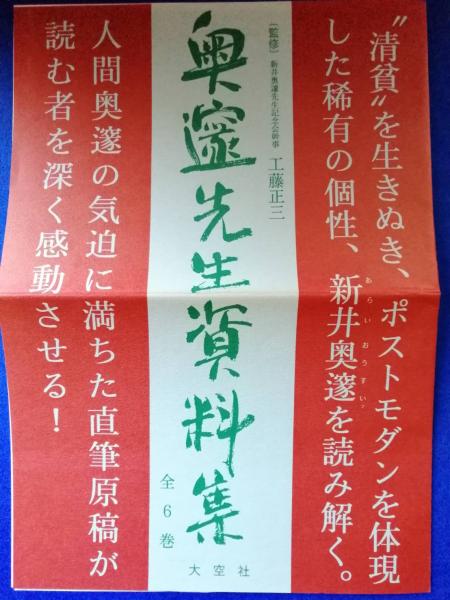 “清貧”を生きぬき、ポストモダンを体現
した稀有の個性、新井奥邃を読み解く。
あらいおうすい
〔監修〕新井奥邃先生記念会幹事 工藤正三
奥邃先生資料集
全6巻
大空社
人間奥邃の気迫に満ちた直筆原稿が
読む者を深く感動させる！